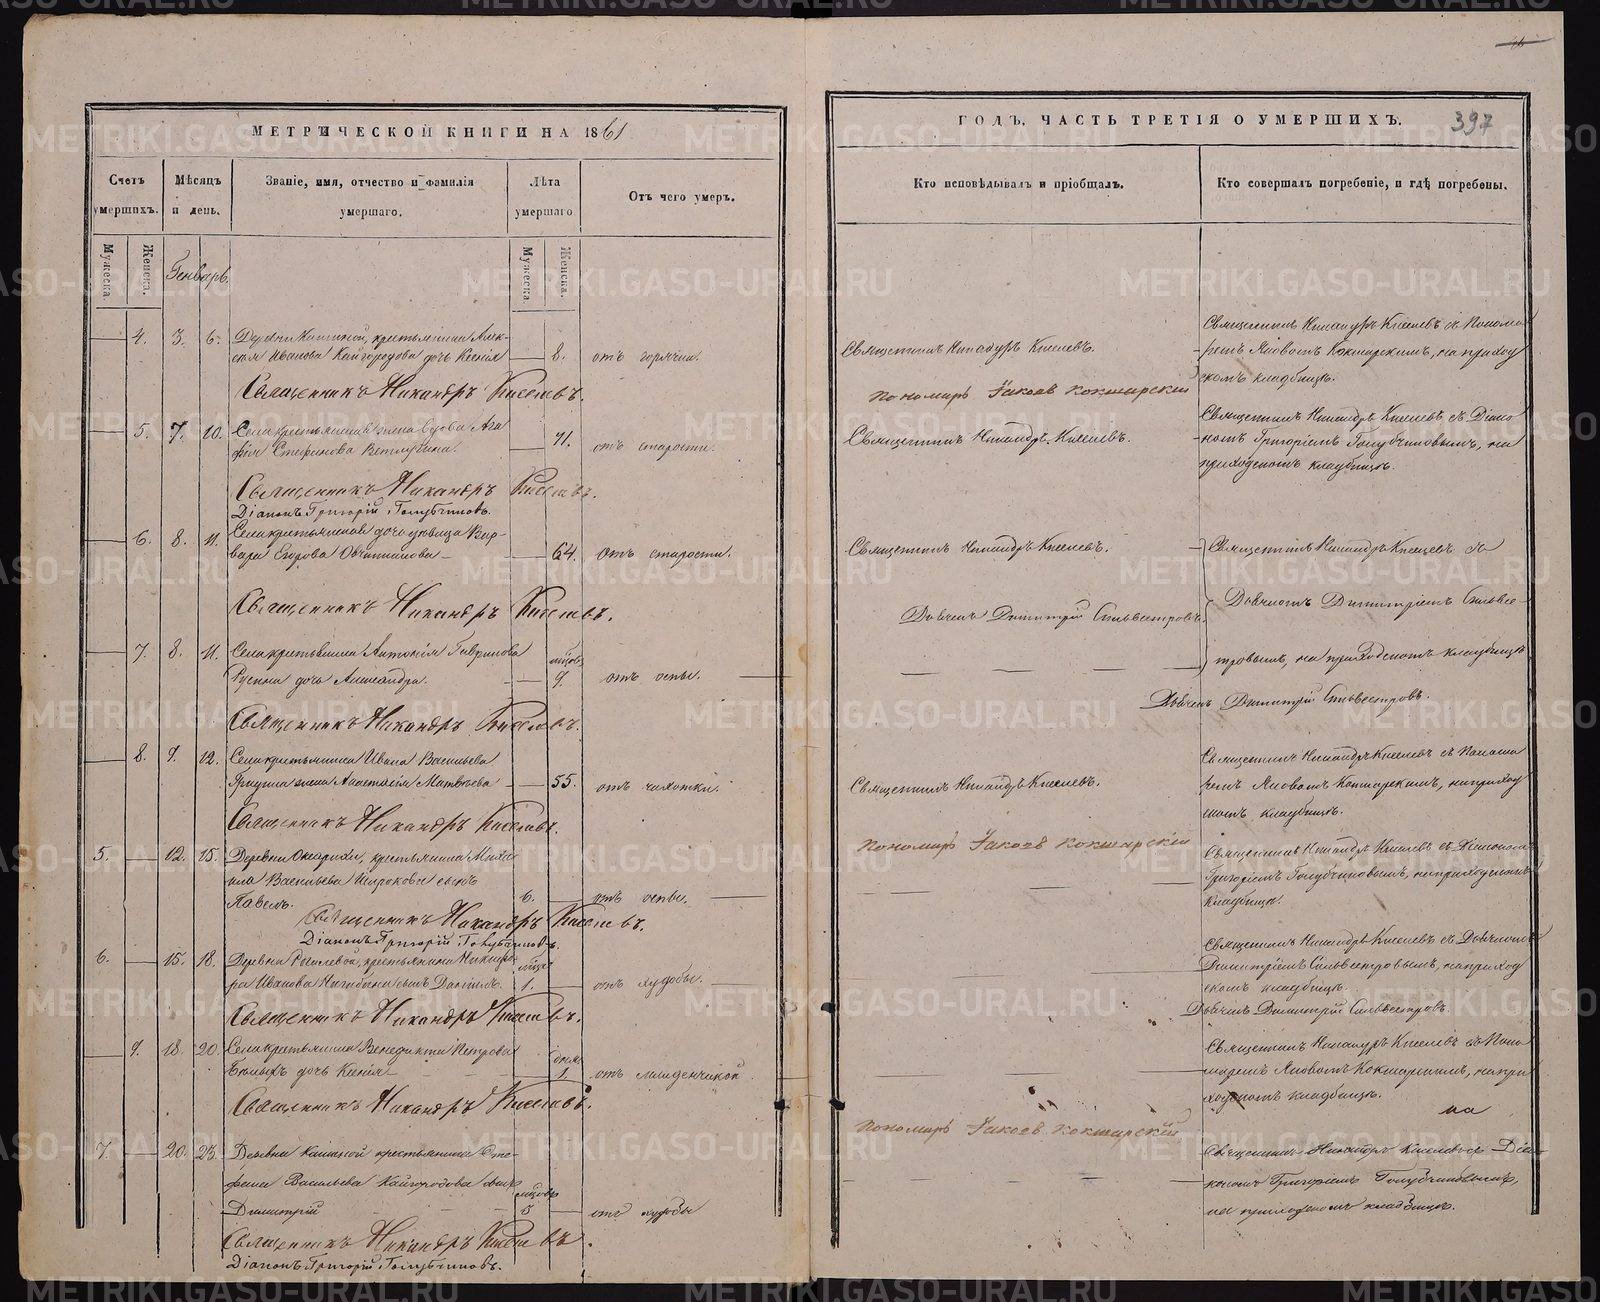 МЕТРИЧЕСКОЙ КНИГИ НА 1861
Счетъ умершихъ.
Мѣсяцъ и день.
Званіе, имя, отчество и фамилія умершаго.
Лѣта умершаго
Отъ чего умеръ.
Мужеска
Женска.
Генварь.
Мужеска
Женска.
4. 3. 6. Деревни крестьянина Алек-
сѣя Иванова Кайгородова дочь Ксенія 8. отъ горячки.
Священникъ Никандръ Киселевъ.
5. 7. 10. Села крестьянская жена вдова Ага
фія Стефанова Ветлугина. 71. отъ старости.
Священникъ Никандръ Киселевъ.
Діаконъ Григорій Голубчиковъ.
6. 8. 11. Села крестьянская дочь дѣвица Вар-
вара Егорова Овчинникова 64. отъ старости.
Священникъ Никандръ Киселевъ.
7. 8. 11. Села крестьянина Гаврилова
Русина дочь Александра. мѣсяцовъ 9. отъ оспы.
Священникъ Никандръ Киселевъ.
8. 9. 12. Села крестьянина Ивана Васильева
жена Анастасія Матвѣева 55. отъ чахотки.
Священникъ Никандръ Киселевъ.
5. 12. 15. Деревни крестьянина Миха
ила Васильева Широкова сынъ
Павелъ. 6. отъ оспы.
Священникъ Никандръ Киселевъ.
Діаконъ Григорій Голубчиковъ.
6. 15. 18. Деревни крестьянина Никифо
ра Иванова сынъ Даніилъ. 1. отъ худобы.
Священникъ Никандръ Киселевъ.
9. 18. 20. Села крестьянина Венедикта Петрова
Бѣлыхъ дочь Ксенія 1 отъ младенческой
Священникъ Никандръ Киселевъ.
7. 20. 23. Деревни крестьянина Сте-
фана Васильева Кайгородова сынъ
Димитрій мѣсяцовъ 5 отъ худобы
Священникъ Никандръ Киселевъ.
Діаконъ Григорій Голубчиковъ.
16
ГОДЪ, ЧАСТЬ ТРЕТІЯ О УМЕРШИХЪ.
397
Кто исповѣдывалъ и пріобщалъ.
Кто совершалъ погребеніе, и гдѣ погребены.
Священникъ Никандръ Киселевъ съ Понома
Священникъ Никандръ Киселевъ.
ремъ Яковомъ Кокшарскимъ, на приход
скомъ кладбищѣ.
Пономарь Іаковъ Кокшарскій
Священникъ Никандръ Киселевъ съ Діако
Священникъ Никандръ Киселевъ.
номъ Григоріемъ Голубчиковымъ, на
приходскомъ кладбищѣ.
Священникъ Никандръ Киселевъ.
Священникъ Никандръ Киселевъ съ
Дьячкомъ Димитріемъ Сильвес-
Дьячекъ Димитрій Сильвестровъ.
тровымъ, на приходскомъ кладбищѣ
Дьячекъ Димитрій Сильвестровъ.
Священникъ Никандръ Киселевъ съ Понома
Священникъ Никандръ Киселевъ.
ремъ Яковомъ Кокшарскимъ, на приход
скомъ кладбищѣ.
Пономарь Іаковъ Кокшарскій
Священникъ Никандръ Киселевъ съ Діакономъ
Григоріемъ Голубчиковымъ, на приходскомъ
кладбищѣ.
Священникъ Никандръ Киселевъ съ Дьячкомъ
Димитріемъ Сильвестровымъ, на приход
скомъ кладбищѣ.
Дьячекъ Димитрій Сильвестровъ.
Священникъ Никандръ Киселевъ съ Поно
маремъ Яковомъ Кокшарскимъ, на при
ходскомъ кладбищѣ.
Пономарь Іаковъ Кокшарскій
Священникъ Никандръ Киселевъ съ Діа-
кономъ Григоріемъ Голубчиковымъ,
на приходскомъ кладбищѣ.
METRIKI.GASO-URAL.RU